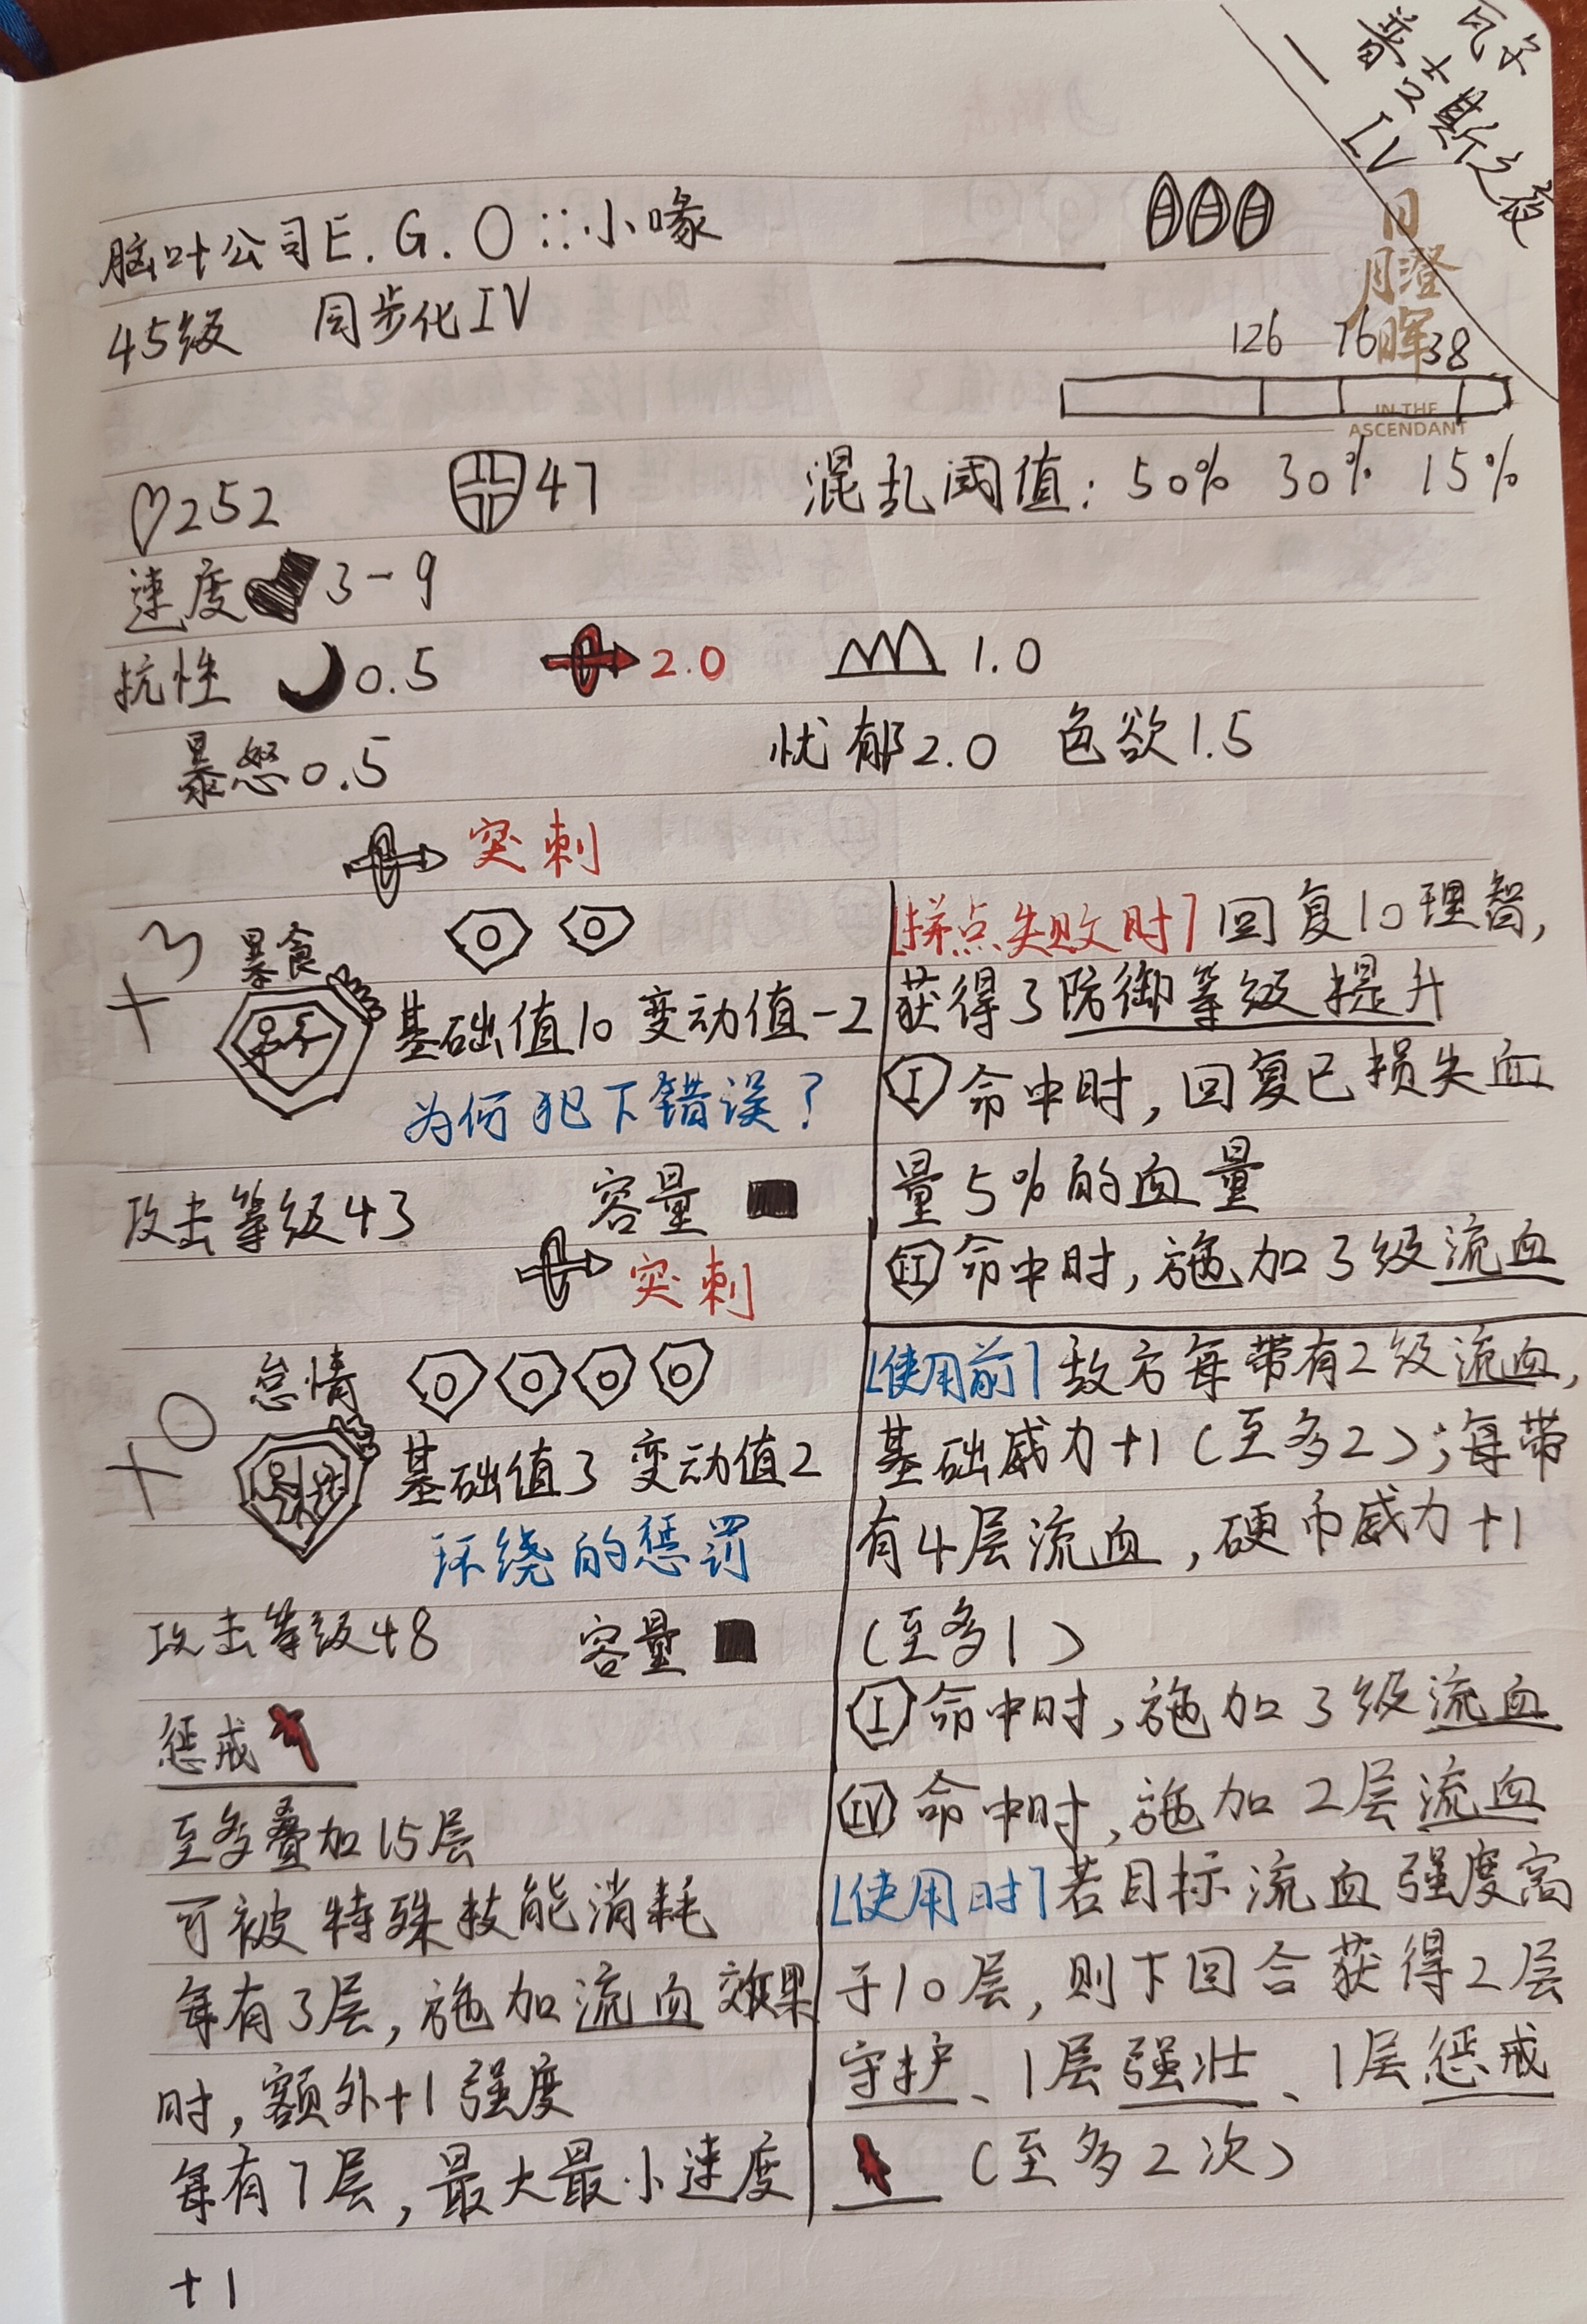 之夜
IV
脑叶公司E.G.O::小喙
45级 同步化IV
日月澄晖
126 76 38
IN THE ASCENDANT
252 47 混乱阈值：50% 30% 15%
速度 3-9
抗性 0.5 2.0 1.0
暴怒0.5 忧郁2.0 色欲1.5
突刺
+3 暴食
基础值10 变动值-2
为何犯下错误？
攻击等级43 容量
[拼点失败时] 回复10理智，
获得3防御等级提升
I 命中时，回复已损失血
量5%的血量
II 命中时，施加3级流血
突刺
+0 怠惰
基础值3 变动值2
环绕的惩罚
攻击等级48 容量
[使用前] 敌方每带有2级流血，
基础威力+1（至多2）；每带
有4层流血，硬币威力+1
（至多1）
I 命中时，施加3级流血
IV 命中时，施加2层流血
[使用时] 若目标流血强度高
于10层，则下回合获得2层
守护、1层强壮、1层惩戒
（至多2次）
惩戒
至多叠加15层
可被特殊技能消耗
每有3层，施加流血效果
时，额外+1强度
每有7层，最大最小速度
+1